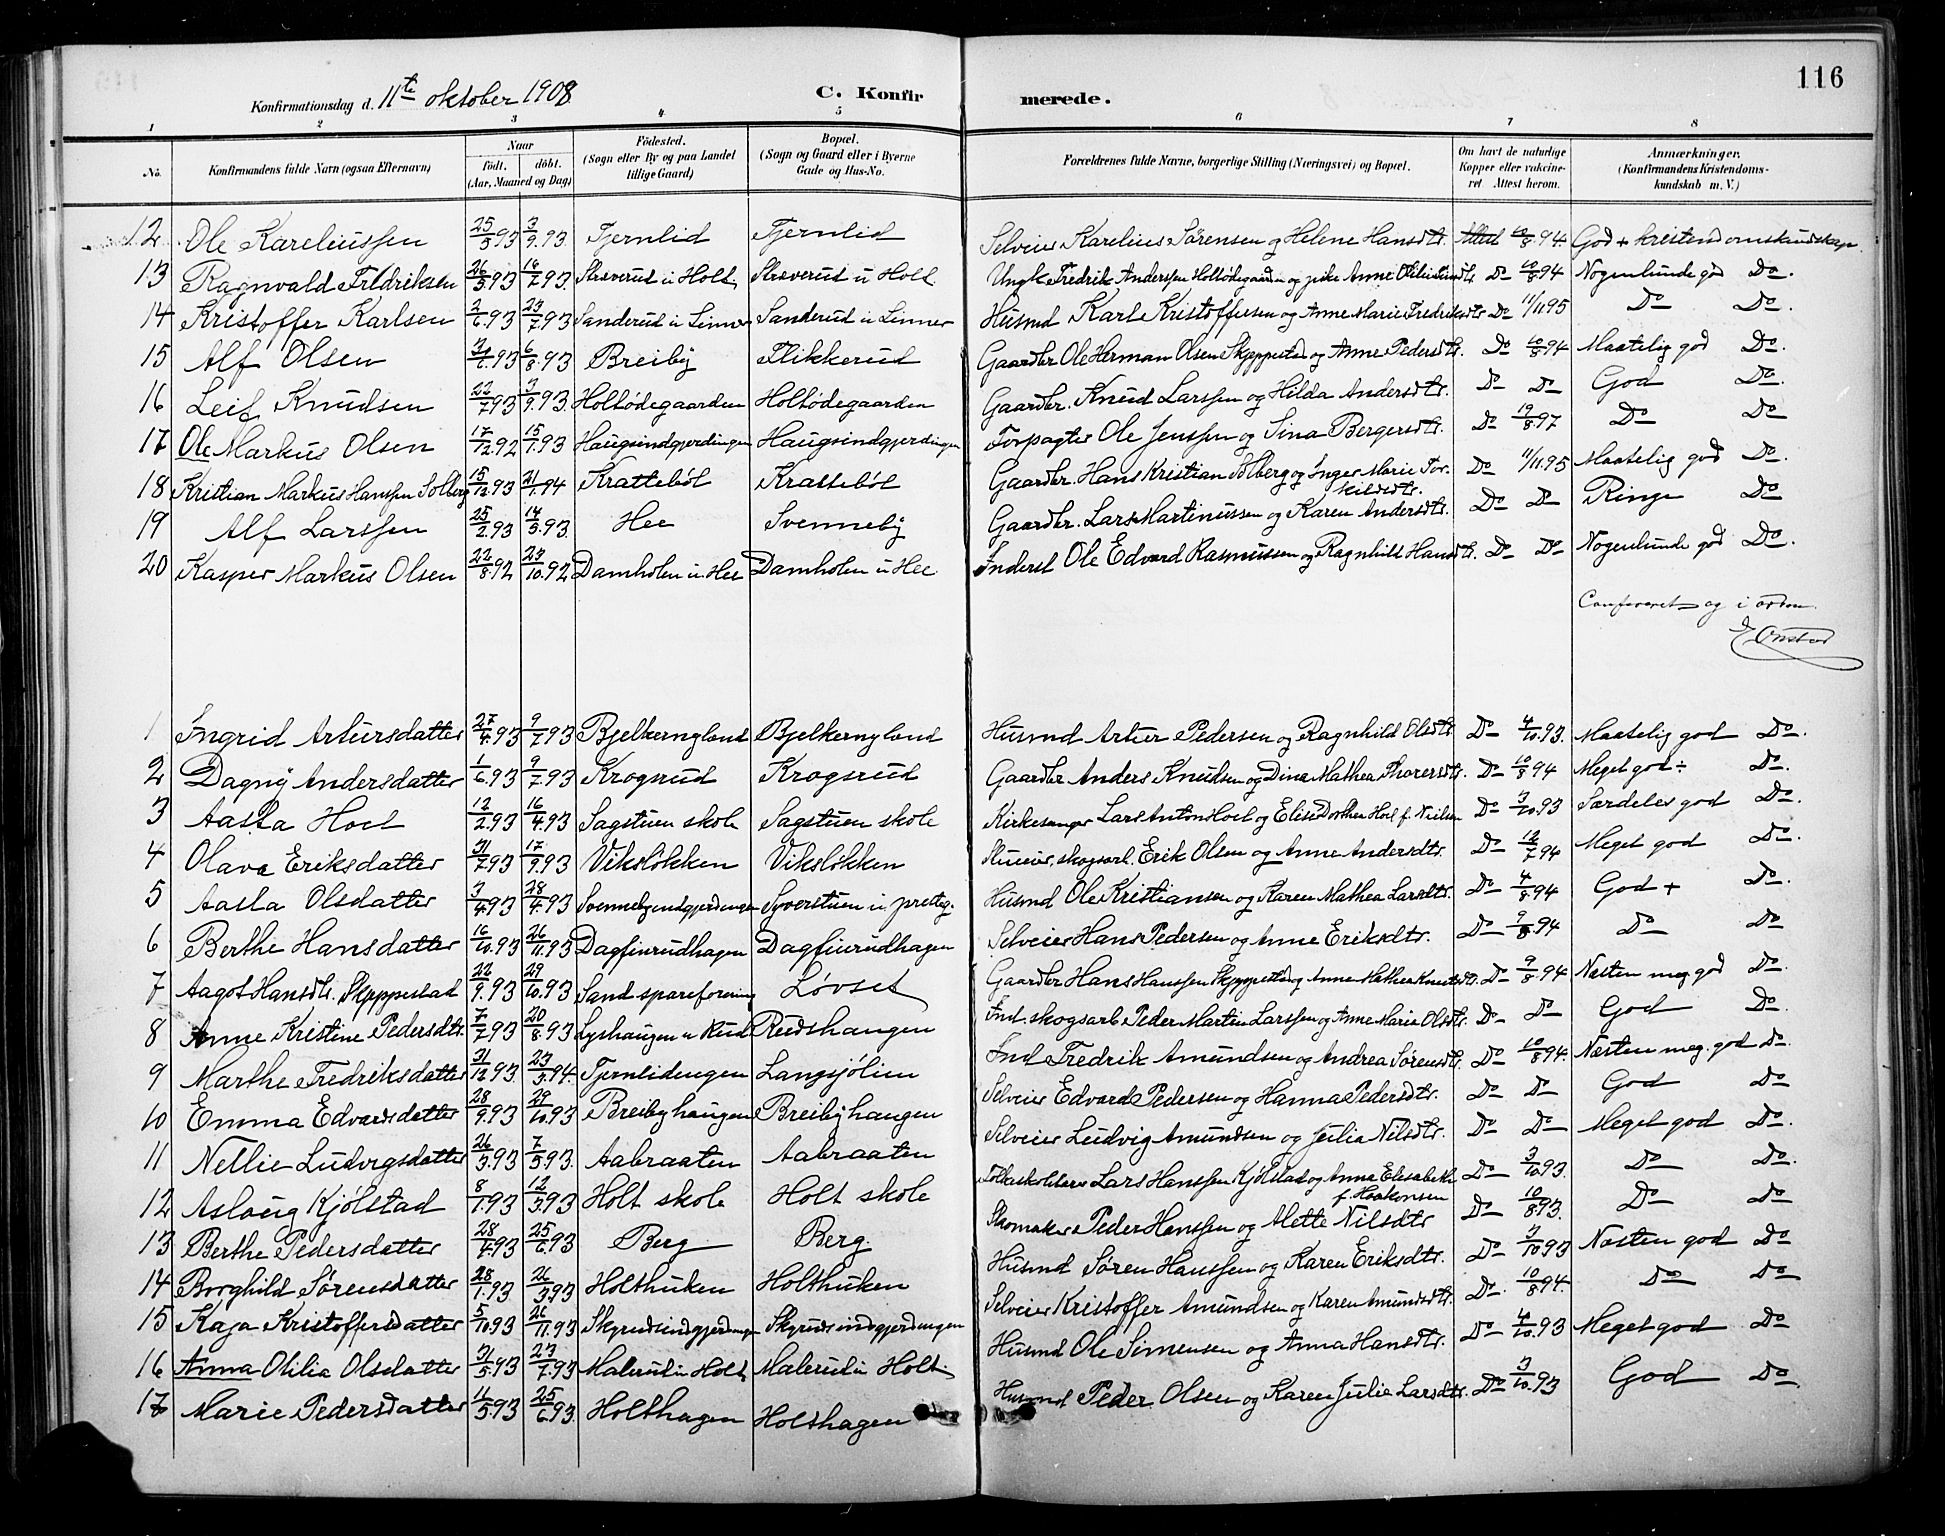 116
Konfirmationsdag d. 11te oktober 1908 C. Konfirmerede.
1 2 3 4 5 6 7 8
No. Konfirmandens fulde Navn (ogsaa Efternavn) Naar födt. döbt. (Aar, Maaned og Dag) Födested. (Sogn eller By og paa Landet tillige Gaard) Bopæl. (Sogn og Gaard eller i Byerne Gade og Hus-No. Forældrenes fulde Navne, borgerlige Stilling (Næringsvei) og Bopæl. Om havt de naturlige Kopper eller vakcineret. Attest herom. Anmærkninger. (Konfirmandens Kristendomskundskab m. V.)
12 Ole Kareliussen 25/5 93 3/9 93 Tjernlid Tjernlid Selveier Karelius Sørensen og Helene Hansdtr. Attest 10/8 94 God + kristendomskundskap
13 Ragnvald Fredriksen 26/5 93 16/7 93 Skæverud u Holt Skæverud u Holt Ungk. Fredrik Anderssen Holtødegaarden og pike Anne Do 10/8 94 Nogenlunde god Do
14 Kristoffer Karlsen 2/6 93 23/7 93 Sanderud u Linner Sanderud u Linner Husmd Karl Kristoffersen og Anne Marie Fredriksdtr Do 11/11 95 Do Do
15 Alf Olsen 93 6/8 93 Breiby Flikkerud Gaardbr Ole Herman Olsen Skjeppestad og Anne Pedersdtr. Do 10/8 94 Maatelig god Do
16 Leif Knudsen 22/7 93 3/9 93 Holtødegaarden Holtødegaarden Gaardbr. Knud Larssen og Hilda Andersdtr. Do Do God Do
17 Ole Markus Olsen 17/12 92 15/1 93 Haugsindgjerdingen Haugsindgjerdingen Forpagter Ole Jenssen og Sina Bergersdtr. Do 19/8 97 Do Do
18 Kristian Markus Hanssen Solberg 15/12 93 21/1 94 Kratteböl Kratteböl Gaardbr. Hans Kristian Solberg og Inger Marie Torskildsdtr. Do 11/11 95 Maatelig god Do
19 Alf Larssen 25/2 93 14/5 93 Hee Svenneby Gaardbr. Lars Martinussen og Karen Andersdtr. Do Do Ringe Do
20 Kasper Markus Olsen 22/8 92 23/10 92 Damholen u Hee Damholen u Hee Inderst Ole Edvard Rasmussen og Ragnhild Hansdtr. Do Do Nogenlunde god Do
Confereret og i orden.
E Onstad
1 Ingrid Artursdatter 27/4 93 9/7 93 Bjelkernyland Bjelkernyland Husmd Artur Pedersen og Ragnhild Olsdtr Do 4/10 93. Maatelig god Do
2 Dagny Andersdatter 1/6 93 9/7 93 Krogsrud Krogsrud Gaardbr Anders Knudsen og Dina Mathea Thoresdtr. Do 10/8 94 Meget god ÷ Do
3 Aasta Hoel 12/2 93 16/4 93 Sagstuen skole Sagstuen skole Kirkesanger Lars Anton Hoel og Elise Dorthea Hoel f. Nielsen Do 3/10 93 Særdeles god Do
4 Olava Eriksdatter 31/7 93 17/9 93 Vikslökken Vikslökken skogsarb. Erik Olsen og Anne Andersdtr. Do 12/7 94 Meget god Do
5 Aasta Olsdatter 3/4 93 28/4 93 Svennebyindgjerdingen Syverstuen u presteg. Husmd Ole Kristiansen og Karen Mathea Larsdtr. Do 4/8 94 God + Do
6 Berthe Hansdatter 16/10 93 26/11 93 Dagfinrudhagen Dagfinrudhagen Selveier Hans Pedersen og Anne Eriksdtr. Do 9/8 94 Do Do
7 Aagot Hansdtr. Skjeppestad 22/9 93 29/10 93 Sand spareforening Løvset Gaardbr Hans Hanssen Skjeppestad og Anne Mathea Knudsdtr. Do 9/8 94 Næsten meg. god Do
8 Anne Kristine Pedersdtr. 7/7 93 20/8 93 Lyshaugen u Rud Rudshaugen Ind. skogsarb. Peder Martin Larssen og Anne Marie Olsdtr. Do Do God Do
9 Marthe Fredriksdatter 31/12 93 23/3 94. Tjernlidengen Langsjölien Ind Fredrik Amundsen og Andrea Sørensdtr. Do 10/8 94. Næsten meg. god Do
10 Emma Edvardsdatter 28/9 93 29/10 93 Breibyhaugen Breibyhaugen Selveier Edvard Pedersen og Hanna Pedersdtr. Do Do God Do
11 Nellie Ludvigsdatter 26/3 93 7/5 93 Aabraaten Aabraaten Selveier Ludvig Amundsen og Julia Nilsdtr. Do Do Meget god Do
12 Aslaug Kjölstad 8/1 93 12/3 93 Holt skole Holt skole Lars Hanssen Kjölstad og Anna Elisabeth f. Haakonsen Do 3/10 93. Do Do
13 Berthe Pedersdatter 28/4 93 25/6 93 Berg Berg Skomaker Peder Hanssen og Mette Nilsdtr Do 10/8 93. Do Do
14 Borghild Sørensdatter 28/1 93 26/3 93 Holthuken Holthuken Husmd Søren Hanssen og Karen Eriksdtr. Do 3/10 93 Næsten god Do
15 Kaja Kristoffersdatter 5/10 93 26/11 93 Skyrudsindgjerdingen Skyrudsindgjerdingen Selveier Kristoffer Amundsen og Karen Amundsdtr. Do. 10/8 94. Do Do
16 Anna Otilia Olsdatter 31/5 93 23/7 93 Malerud u Holt Malerud u Holt Husmd Ole Simensen og Anna Hansdtr. Do 4/10 93 Meget god Do
17 Marie Pedersdatter 11/5 93 25/6 93 Holthagen Holthagen Husmd Peder Olsen og Karen Julie Larsdtr. Do 3/10 93 God Do